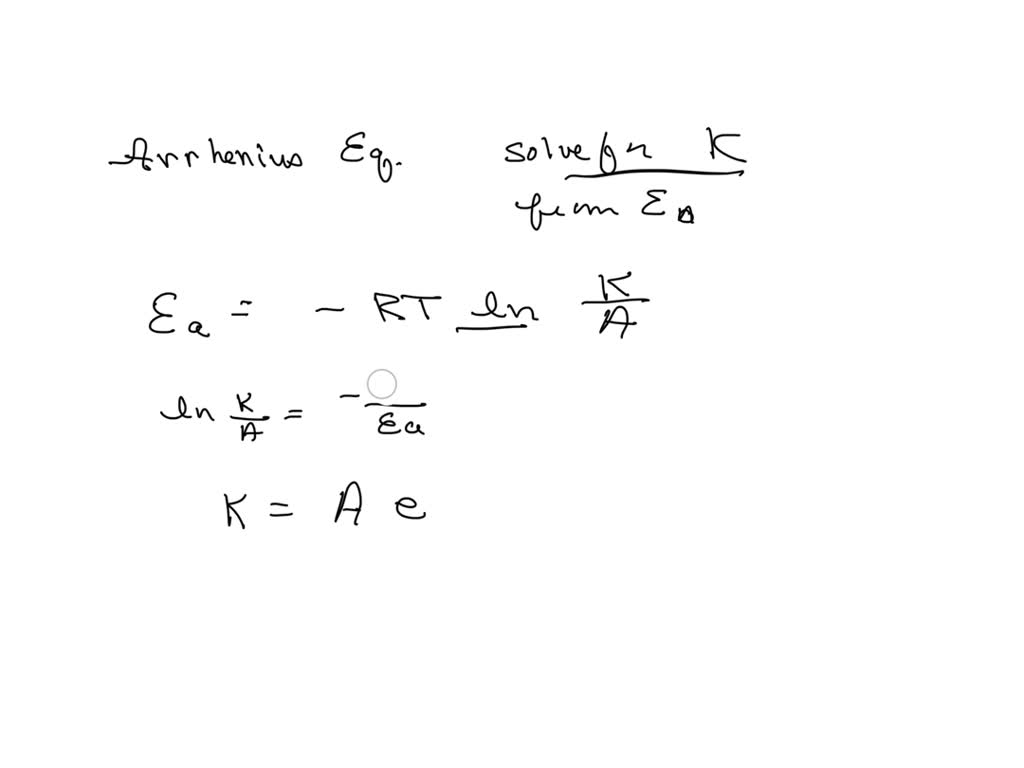 Arrhenius Eq. solve for K
from Ea
Ea = - RT ln K/A
ln K/A = - /Ea
K = A e